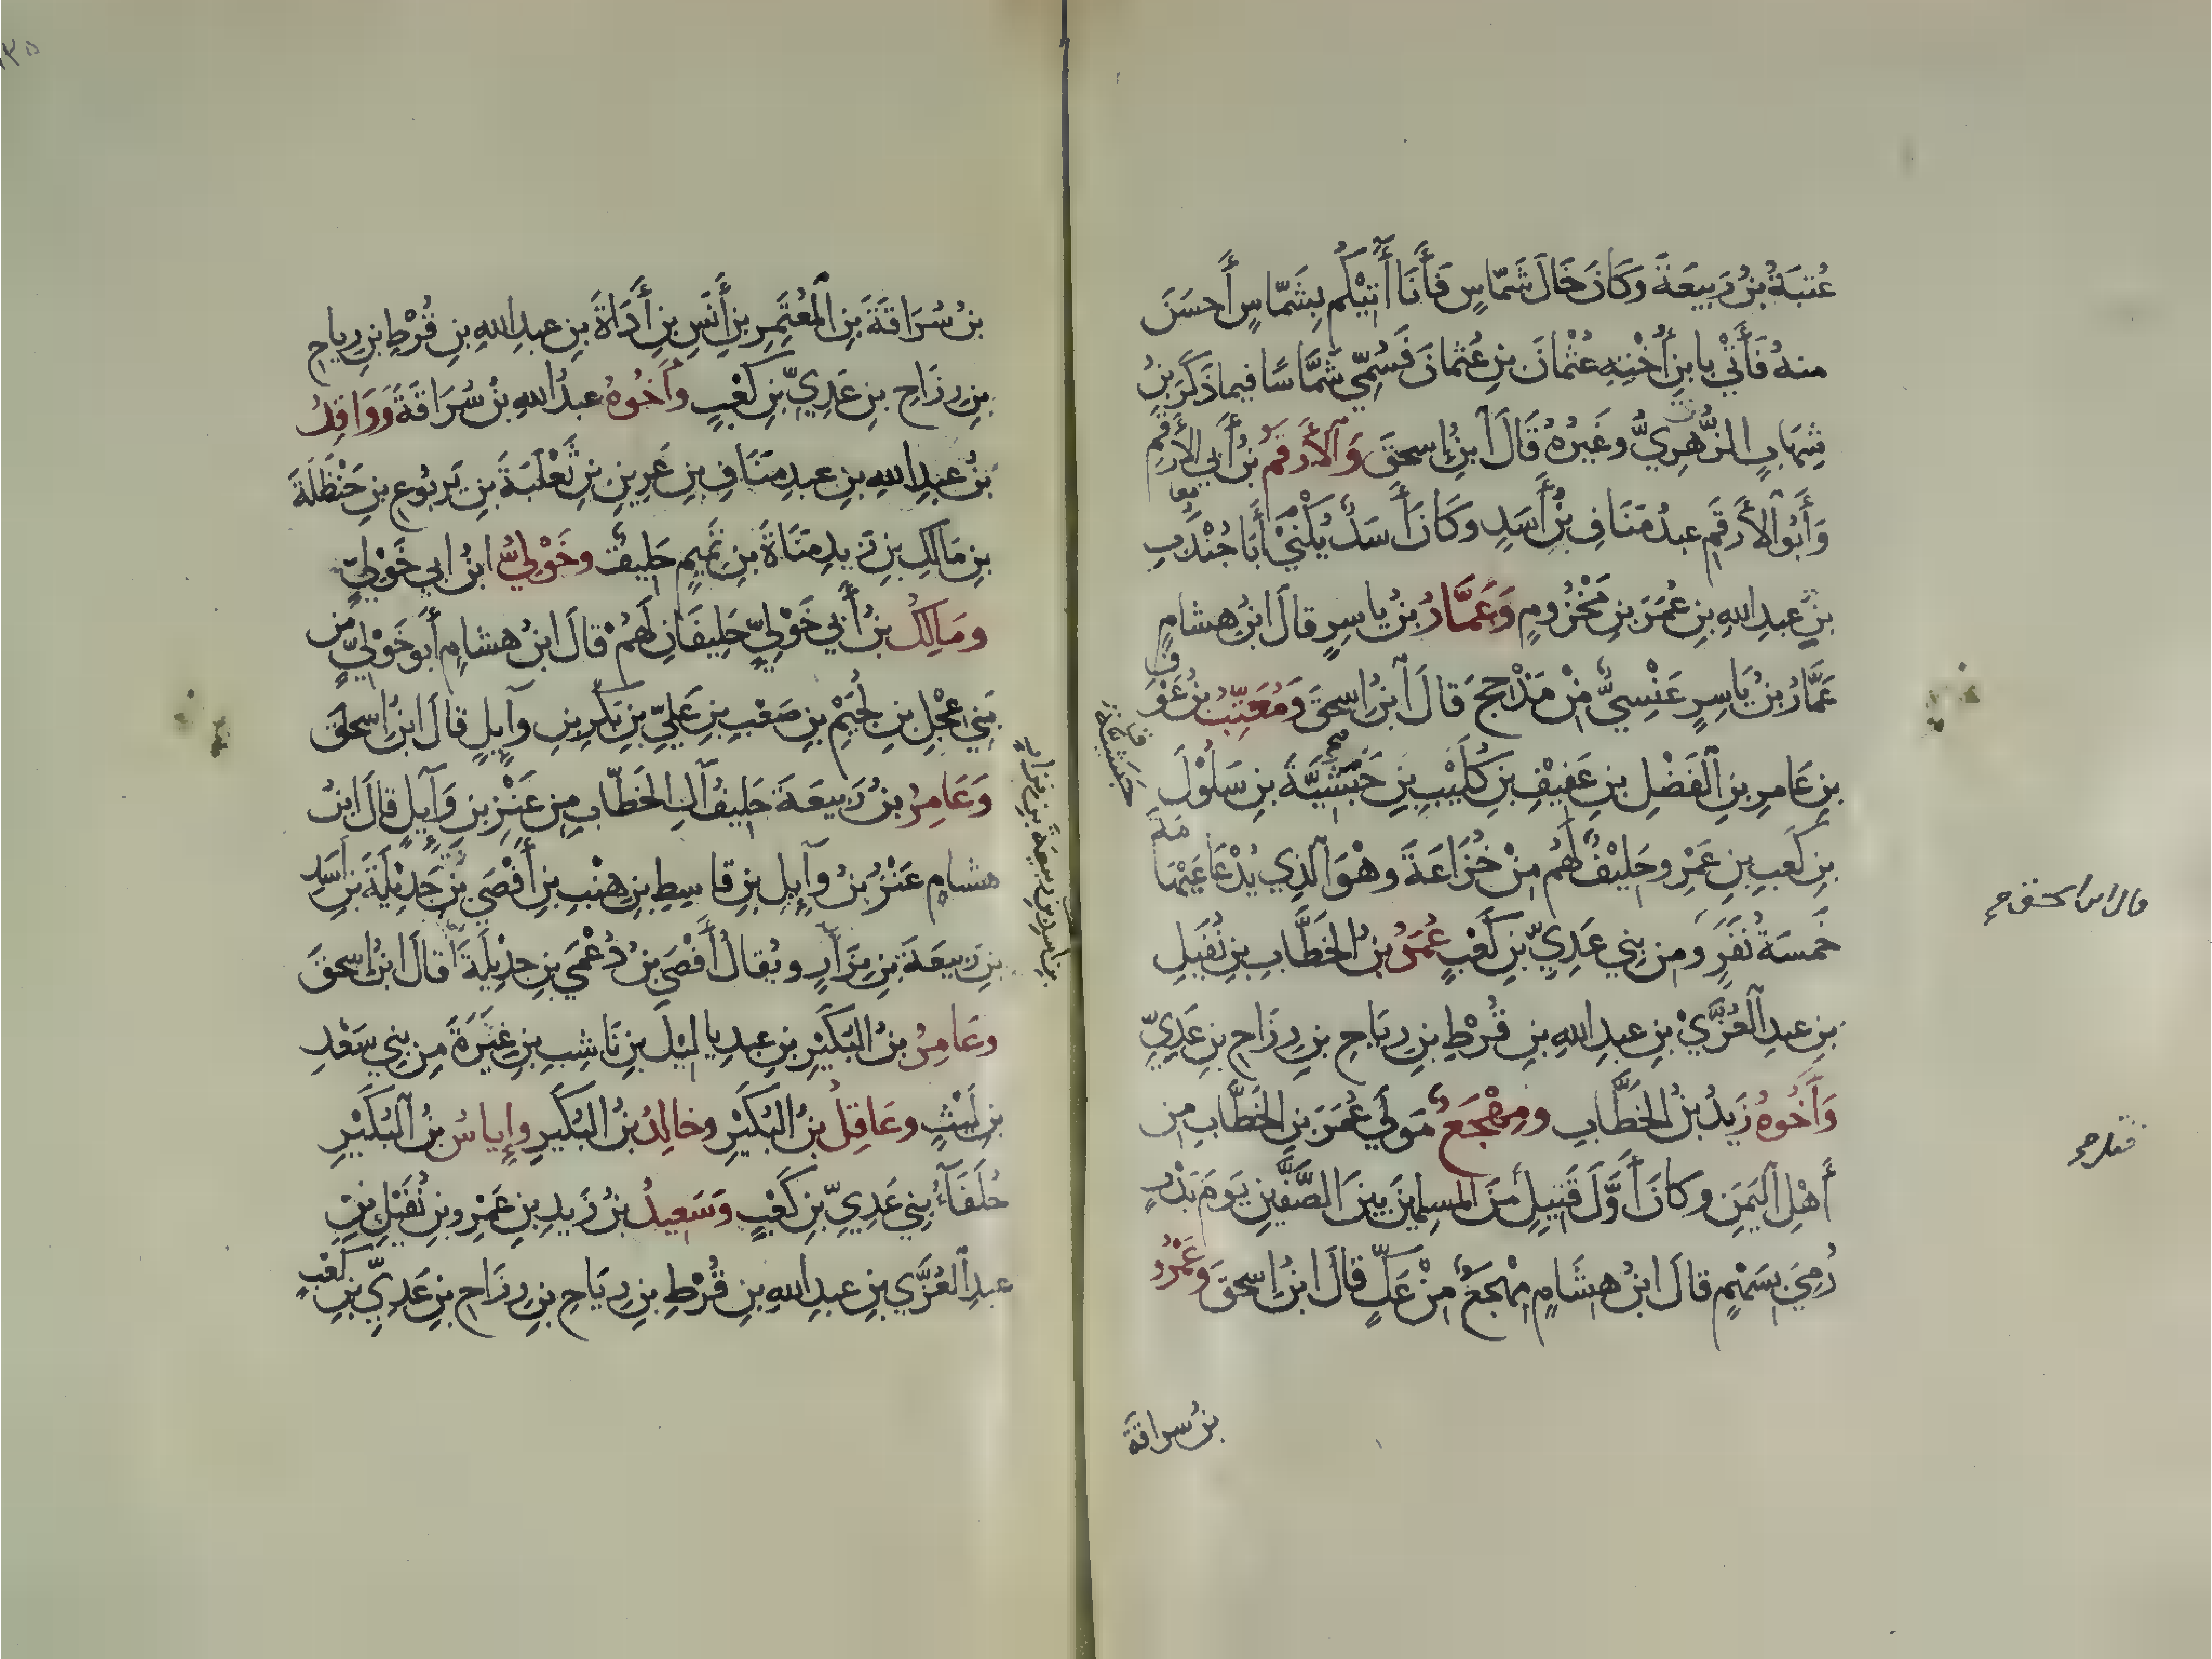 عُتبَةُ بنُ رَبيعَةَ وَكَانَ خَالَ شَمّاسٍ فَأَنَا أٓتيْكُم بِشَمّاسٍ أَحسَنَ
منهُ فَأَتْي بابنِ أُخْتِهِ عُثْمانَ بنِ عُثمانَ فَسُمِّيَ شَمَّاسًا فيما ذَكَرَ بنُ
شِهَابٍ الزُّهرِيُّ وغَيرُهُ قَالَ ابنُ إسحقَ وَالأَرقَمُ بنُ أَبي الأَرقَمِ
وَأَبُو الأَرقَمِ عبدُ مَنَافِ بنُ أَسَدٍ وَكَانَ أَسَدٌ يُكْنَيْ أَبَا جُنْدَبِ
بنِ عبدِ اللهِ بنِ عُمَرَ بنِ مَخْزُومٍ وَعَمَّارُ بنُ ياسِرٍ قالَ ابنُ هِشامٍ
عَمَّارُ بنُ يَاسِرٍ عَنْسِيٌّ مِنْ مَذْحِجَ قَالَ ابنُ إسحقَ وَمُعَتِّبُ بنُ عَوْفِ
بنِ عَامِرِ بنِ الفَضْلِ بنِ عَفِيْفِ بنِ كُلَيْبِ بنِ حَبْشِيَّةَ بنِ سَلُوْلَ
بنِ كَعبِ بنِ عَمْرٍ وحَلِيْفٌ لَهُم مِنْ خُزَاعَةَ وهْوَ الَّذِي يُدْعَا عَيْهَامَةَ
خَمسَةُ نَفَرٍ وَمِن بِني عَدِيِّ بنِ كَعْبٍ عُمَرُ بنُ الخَطَّابِ بنِ نُفَيلِ
بنِ عبدِ العُزَّيْ بنِ عبدِ اللهِ بنِ قُرْطِ بنِ رِيَاحِ بنِ رِزَاحِ بنِ عَدِيِّ
وَأَخُوهُ زَيدُ بنُ الخَطَّابِ ومِهْجَعٌ مَوليَ عُمَرَ بنِ الخَطَّابِ مِن
أَهْلِ اليَمَنِ وَكانَ أَوَّلَ قَتِيلٍ مِنَ المسلِمِينَ بَينَ الصَّفَّينِ يَومَ بَدْرٍ
رُمِيَ بِسَهْمٍ قالَ ابنُ هِشَامٍ مِهْجَعٌ مِنْ عَكٍّ قالَ ابنُ إسحقَ وعَمْرُو
حَبَشِيَّة
قال ابن اسحق
بنُ سراقَةَ
بنُ سُرَاقَةَ بنِ المُعْتَمِرِ بنِ أَنَسِ بنِ أَدَاةَ بنِ عبدِ اللهِ بنِ قُرْطِ بنِ رِياحِ
بنِ رِزَاحِ بنِ عَدِيِّ بنِ كَعْبٍ وأَخُوهُ عبدُ اللهِ بنُ سُرَاقَةَ وَوَاقِدُ
بنُ عبدِ اللهِ بنِ عبدِ مَنَافِ بنِ عَرِينِ بنِ ثَعْلَبَةَ بنِ يَربُوعِ بنِ حَنْظَلَةَ
بنِ مَالِكِ بنِ زَيدِ مَنَاةَ بنِ تَمِيمٍ حَلِيفٌ وخَوْلِيُّ ابنُ ابي خَوْلِيٍّ
ومَالِكُ بنُ أَبي خَوْلِيٍّ حَلِيفَانِ لَهُمْ قالَ ابنُ هشامٍ أَبو خَوْلِيٍّ من
بَنِي عِجْلِ بنِ لُجَيْمِ بنِ صَعْبِ بنِ عَلِيِّ بنِ بَكْرِ بنِ وآيِلٍ قالَ ابنُ إسحقَ
وَعَامِرُ بنُ رَبيعَةَ حَلِيفُ آلِ الخَطّابِ مِن عَنْزِ بنِ وَآيِلٍ قالَ ابنُ
هشامٍ عَنْزُ بنُ وَآيِلِ بنِ قاسِطِ بنِ هِنْبِ بنِ أَفْصَي بنِ جَدِيْلَةَ بنِ أَسَدِ
بنِ رَبيعَةَ بنِ نِزَارٍ ويُقالُ أَفْصَي بنُ دُعْمِيِ بنِ جَدِيْلَةَ قالَ ابنُ إسحقَ
وعَامِرُ بنُ البُكَيْرِ بنِ عبدِ يا ليْلَ بنِ نَاشِبِ بنِ غِيَرَةَ مِن بِني سَعْدِ
بنِ لَيْثٍ وعَاقِلُ بنُ البُكَيْرِ وخالِدُ بنُ البُكَيرِ وإياسُ بنُ البُكَيْرِ
حُلَفَآءُ بِني عَدِيِّ بنِ كَعْبٍ وَسَعِيدُ بنُ زَيدِ بنِ عَمْرِو بنِ نُفَيْلِ بنِ
عبدِ العُزَّي بنِ عبدِ اللهِ بنِ قُرْطِ بنِ رِيَاحِ بنِ رِزَاحِ بنِ عَدِيِّ بنِ كَعْبٍ
بن أسد بن ربيعة بن نزار